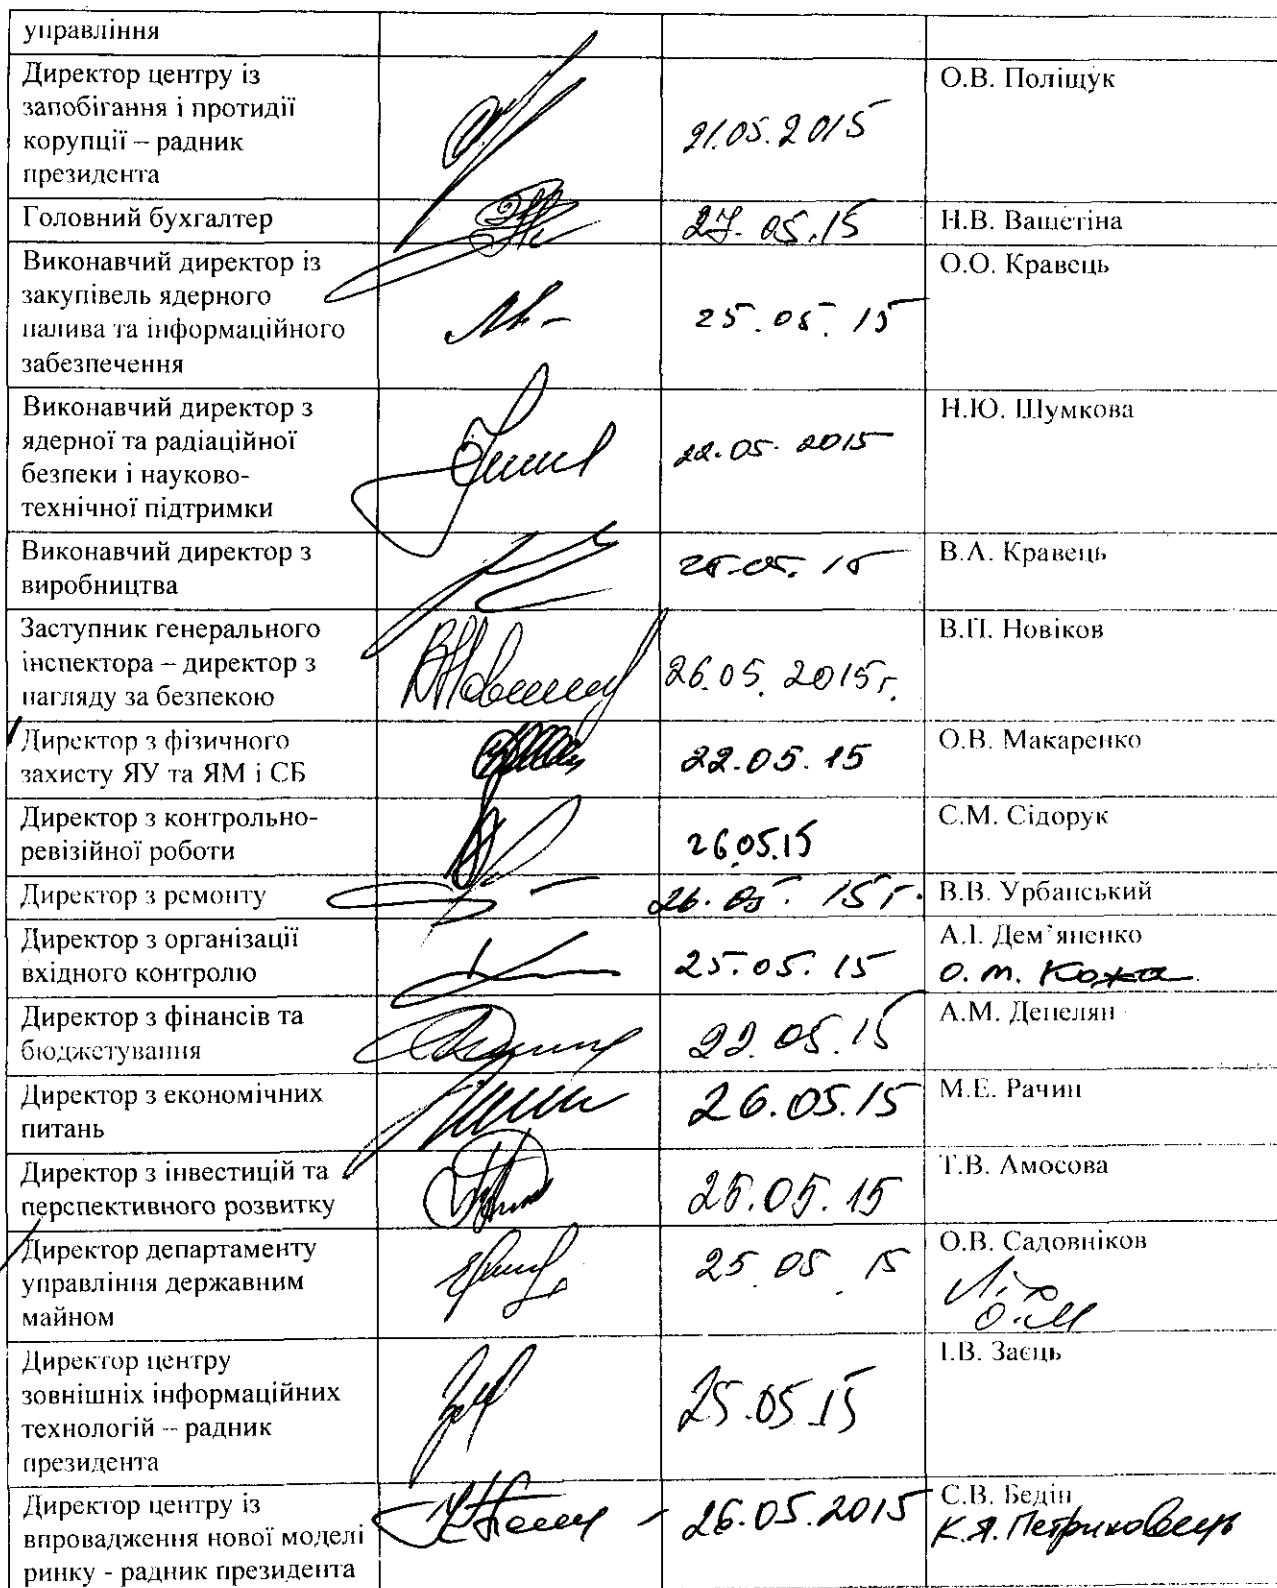 управління
Директор центру із
запобігання і протидії
корупції – радник
президента
21.05.2015
О.В. Поліщук
Головний бухгалтер
27.05.15
Н.В. Вашетіна
Виконавчий директор із
закупівель ядерного
палива та інформаційного
забезпечення
25.05.15
О.О. Кравець
Виконавчий директор з
ядерної та радіаційної
безпеки і науково-
технічної підтримки
22.05.2015
Н.Ю. Шумкова
Виконавчий директор з
виробництва
25.05.15
В.А. Кравець
Заступник генерального
інспектора – директор з
нагляду за безпекою
26.05.2015г.
В.П. Новіков
Директор з фізичного
захисту ЯУ та ЯМ і СБ
22.05.15
О.В. Макаренко
Директор з контрольно-
ревізійної роботи
26.05.15
С.М. Сідорук
Директор з ремонту
26.05.15г.
В.В. Урбанський
Директор з організації
вхідного контролю
25.05.15
А.І. Дем’яненко
О.М. Кожа
Директор з фінансів та
бюджетування
22.05.15
А.М. Депелян
Директор з економічних
питань
26.05.15
М.Е. Рачин
Директор з інвестицій та
перспективного розвитку
25.05.15
Т.В. Амосова
Директор департаменту
управління державним
майном
25.05.15
О.В. Садовніков
Директор центру
зовнішніх інформаційних
технологій – радник
президента
25.05.15
І.В. Заєць
Директор центру із
впровадження нової моделі
ринку - радник президента
26.05.2015
С.В. Бедін
К.Я. Петриковець